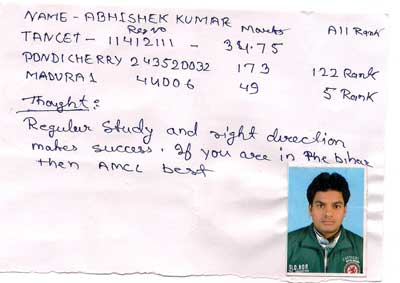 NAME - ABHISHEK KUMAR
Reg no Marks All Rank
TANCET - 11412111 - 34.75
PONDICHERRY 243520032 173 122 Rank
MADURAI 44006 49 5 Rank
Thought :
Regular Study and right direction
makes success. If you are in the bihar
then AMCL best